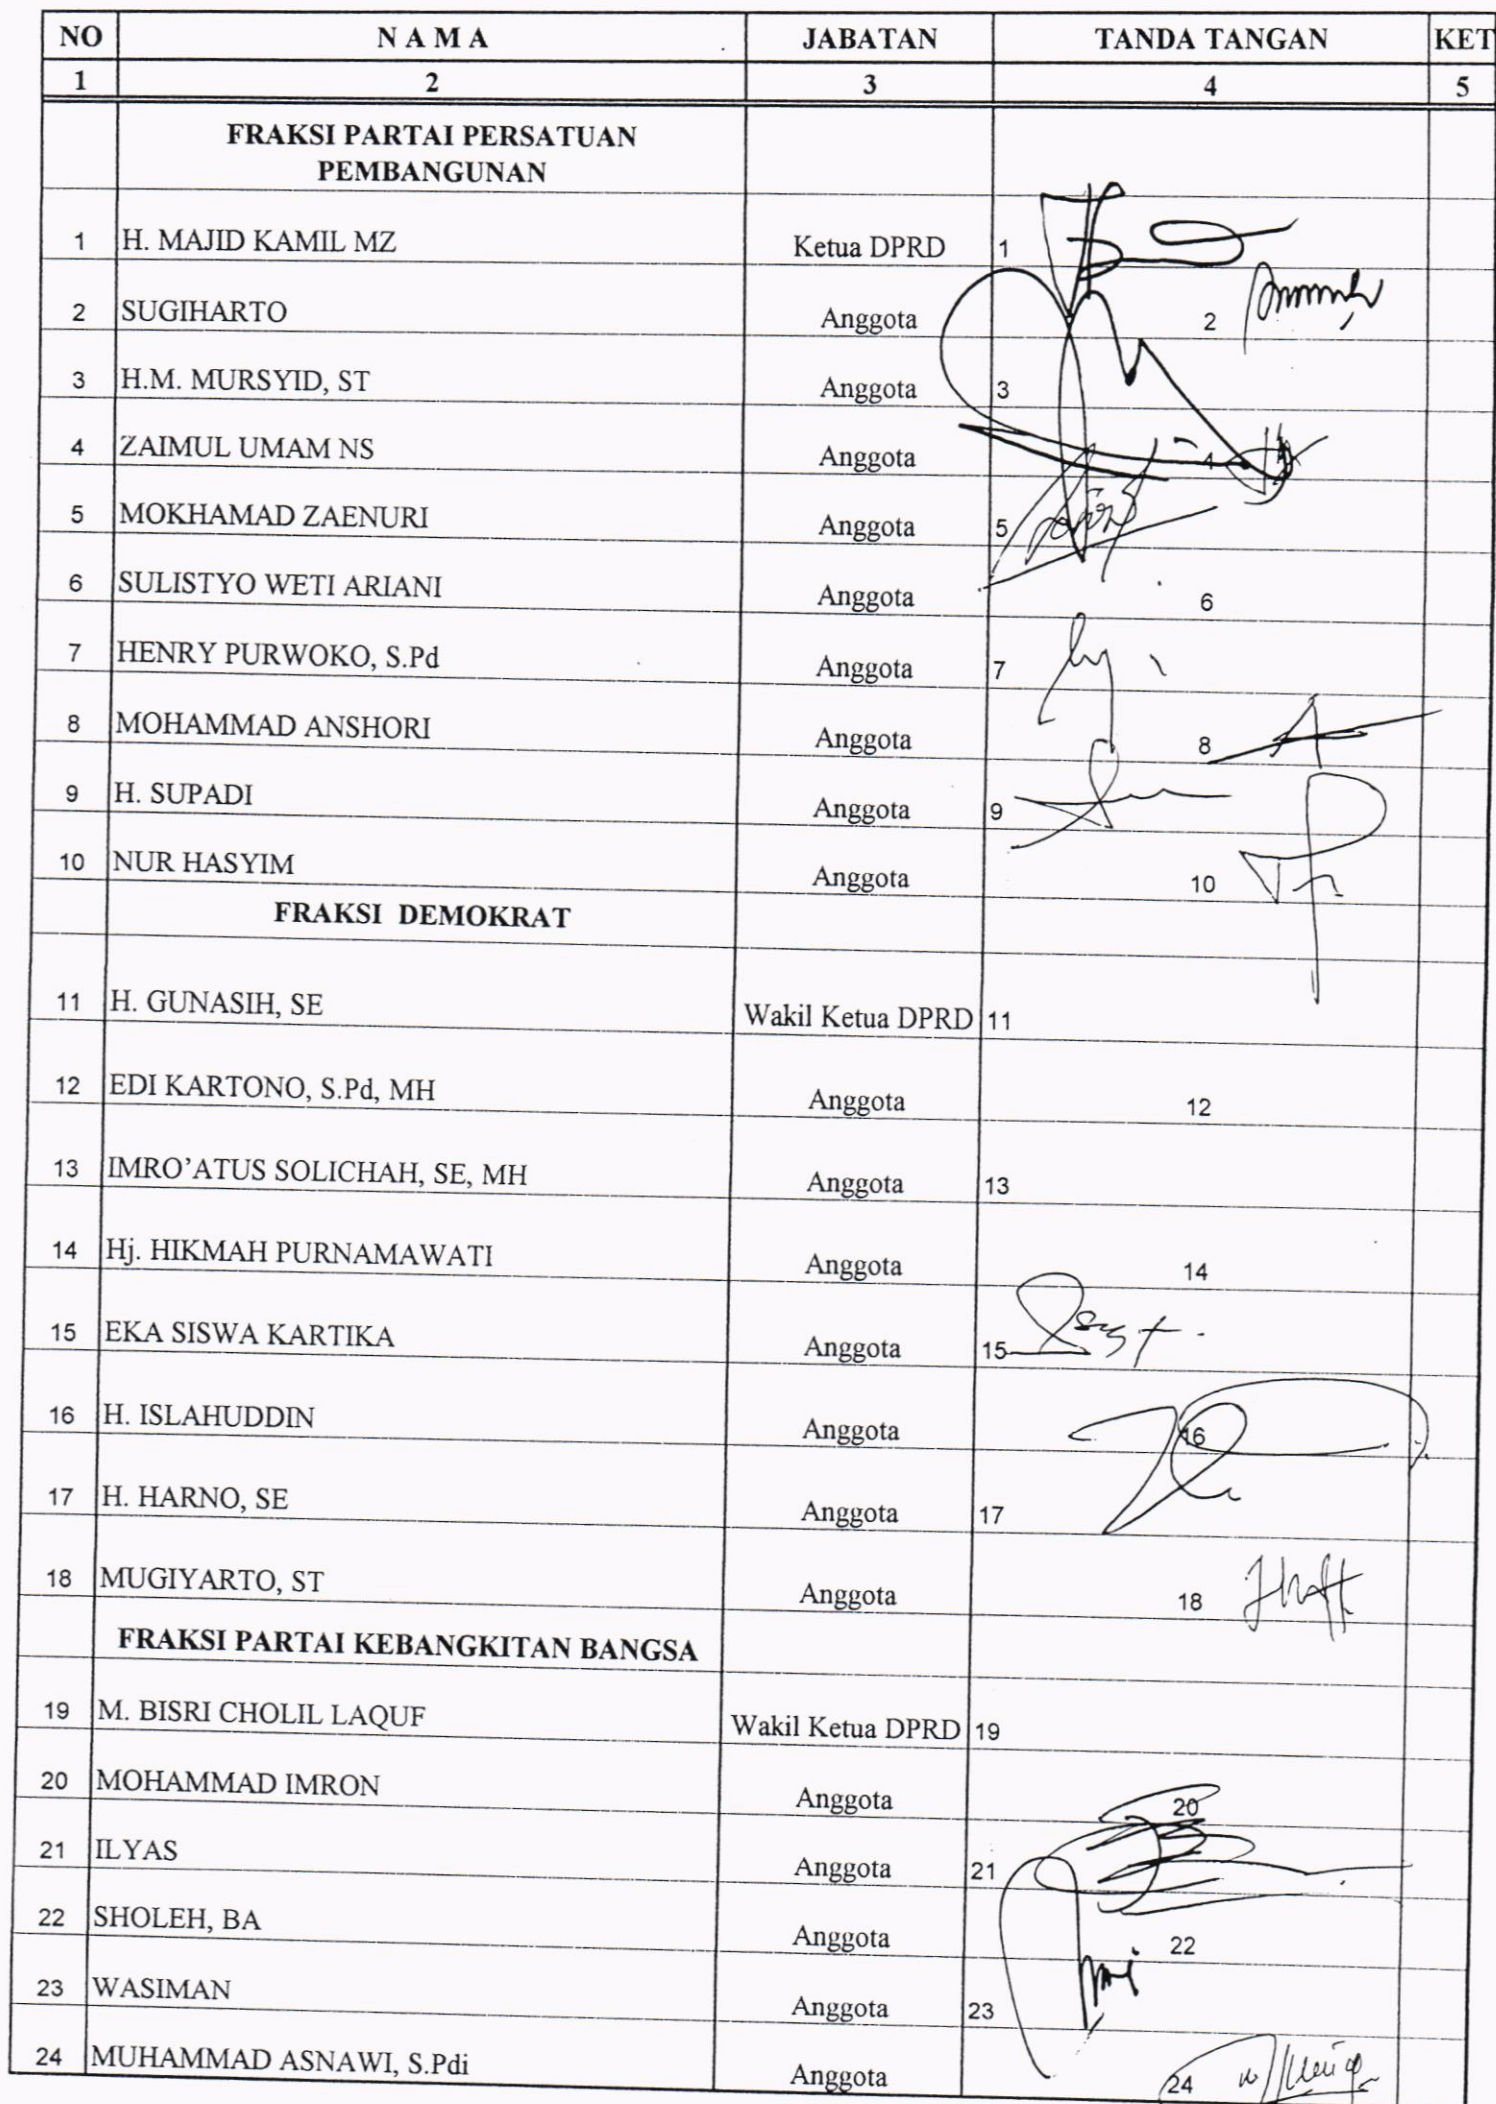 NO N A M A JABATAN TANDA TANGAN KET
1 2 3 4 5
FRAKSI PARTAI PERSATUAN
PEMBANGUNAN
1 H. MAJID KAMIL MZ Ketua DPRD 1
2 SUGIHARTO Anggota 2
3 H.M. MURSYID, ST Anggota 3
4 ZAIMUL UMAM NS Anggota 4
5 MOKHAMAD ZAENURI Anggota 5
6 SULISTYO WETI ARIANI Anggota 6
7 HENRY PURWOKO, S.Pd Anggota 7
8 MOHAMMAD ANSHORI Anggota 8
9 H. SUPADI Anggota 9
10 NUR HASYIM Anggota 10
FRAKSI DEMOKRAT
11 H. GUNASIH, SE Wakil Ketua DPRD 11
12 EDI KARTONO, S.Pd, MH Anggota 12
13 IMRO’ATUS SOLICHAH, SE, MH Anggota 13
14 Hj. HIKMAH PURNAMAWATI Anggota 14
15 EKA SISWA KARTIKA Anggota 15
16 H. ISLAHUDDIN Anggota 16
17 H. HARNO, SE Anggota 17
18 MUGIYARTO, ST Anggota 18
FRAKSI PARTAI KEBANGKITAN BANGSA
19 M. BISRI CHOLIL LAQUF Wakil Ketua DPRD 19
20 MOHAMMAD IMRON Anggota 20
21 ILYAS Anggota 21
22 SHOLEH, BA Anggota 22
23 WASIMAN Anggota 23
24 MUHAMMAD ASNAWI, S.Pdi Anggota 24